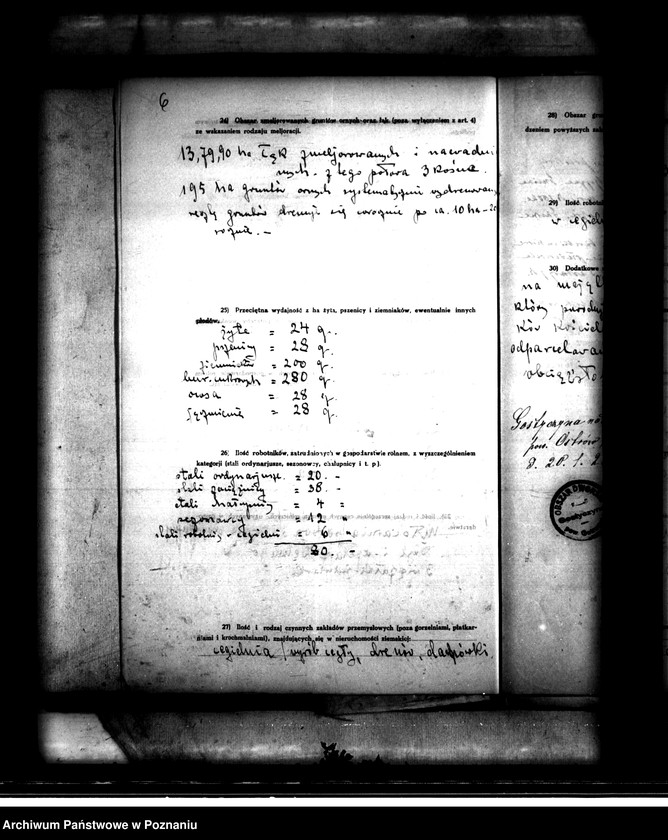 6
24) Obszar zmeljorowanych gruntów ornych oraz łąk (poza wyłączeniem z art. 4)
ze wskazaniem rodzaju meljoracji.
13,79,90 ha łąk zmeljorowanych i nawadnia
nych. z tego połowa 3 kośna.
195 ha gruntów ornych systematycznie wydrenowany
reszty gruntów drenuje się corocznie po ca. 10 ha - 20
rocznie. -
25) Przeciętna wydajność z ha żyta, pszenicy i ziemniaków, ewentualnie innych
żyta = 24 q.
pszenicy = 28 q.
ziemniaków = 200 q.
bur. cukrowych = 280 q.
owsa = 28 q.
jęczmienia = 28 q.
26) Ilość robotników, zatrudnionych w gospodarstwie rolnem, z wyszczególnieniem
kategorji (stali ordynarjusze, sezonowcy, chałupnicy i t. p.).
stali ordynarjusze = 20. -
stali = 38. -
stali = 4 "
sezonowcy = 12 "
stali robotnicy w cegielni = 6 "
80. -
27) Ilość i rodzaj czynnych zakładów przemysłowych (poza gorzelniami, płatkar-
niami i krochmalniami), znajdujących się w nieruchomości ziemskiej:
cegielnia / wyrób cegły, drenów, dachówki.
28) Obszar gru
dzeniem powyższych zak
29) Ilość robotn
w cegiel
30) Dodatkowe
na mająt
który
kościel
odparcelowan
obciążo
Gostyczyna
pow. Ostrów
d. 20. 1. 2
Archiwum Państwowe w Poznaniu